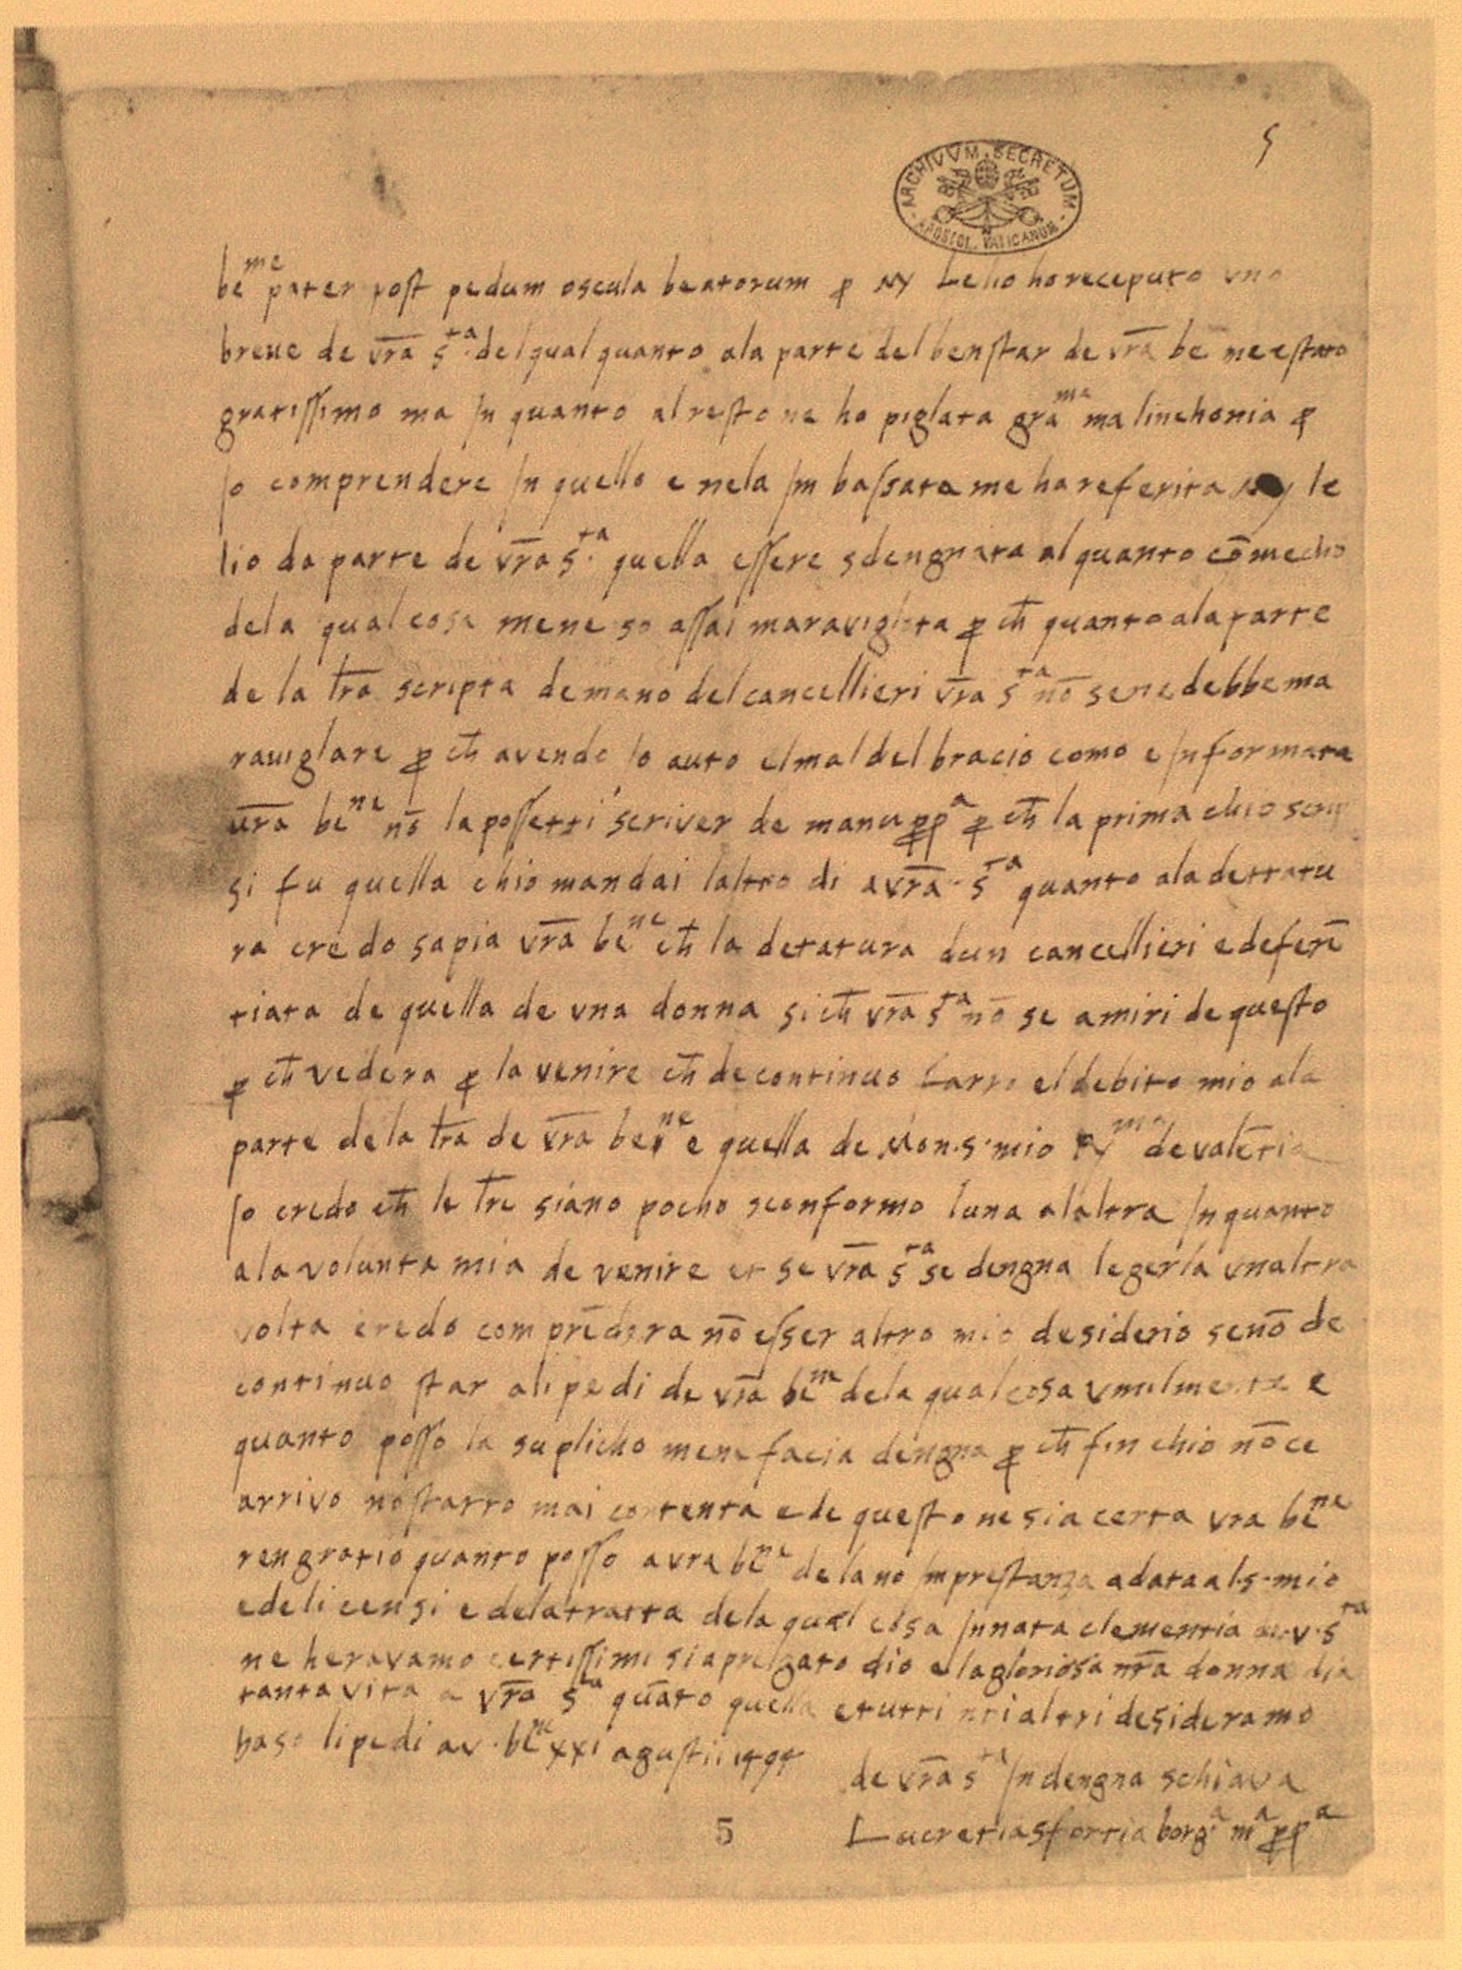 5
ARCHIVVM SECRETUM
APOSTOL. VATICANUM
be^me pater post pedum oscula beatorum p̱ Lelio ho receputo uno
breue de vr̄a s^ta del qual quanto ala parte del benstar de vr̄a be ne estato
gratissimo ma In quanto al resto ne ho piglata grā^ma malinchonia p̱
Io comprendere In quello e nela Im bassata me ha referita le
lio da parte de vr̄a s^ta quella essere sdengnata alquanto cōmecho
dela qual cosa mene so assai maraviglata p̱ ch̄ quanto ala parte
de la lr̄a scripta de mano del cancellieri vr̄a s^ta nō se ne debbe ma
rauiglare p̱ ch̄ avendo Io auto el mal del bracio como e Informata
vr̄a be^ne nō la possetti scriver de manu p̱p^a p̱ ch̄ la prima chio scrip
si fu quella chio mandai laltro di a vr̄a s^ta quanto ala dettatu
ra credo sapia vr̄a be^ne ch̄ la detatura dun cancellieri e deferē
tiata de quella de una donna si ch̄ vr̄a s^ta nō se amiri de questo
p̱ ch̄ vedera p̱ la venire ch̄ de continuo farro el debito mio ala
parte dela lr̄a de vr̄a be^ne e quella de Mon.s. mio de valētia
Io credo ch̄ le lr̄e siano pocho sconformo luna alaltra In quanto
ala volunta mia de venire et se vr̄a s^ta se dengna legerla unaltra
volta credo comprēdera nō esser altro mio desiderio senō de
continuo star ali pedi de vr̄a be^ne dela qual cosa umilmente e
quanto posso la suplicho mene facia dengna p̱ ch̄ fin chio nō ce
arrivo no starro mai contenta e de questo ne sia certa vra be^ne
rengratio quanto posso a vra be^ne dela nō Imprestanza a data al .s. mio
e deli censi e dela tratta dela qual cosa Innata clementia de .v. s^ta
ne heravamo certissimi sia pregato dio e la gloriosa nr̄a donna dia
tanta vita a vr̄a s^ta quāto quella e tutti nri altri desideramo
baso li pedi a v. be^ne xxi agusti 1494
de vr̄a s^ta Indengna schiava
Lucretia sfortia borg^a m^a p̱p^a
5